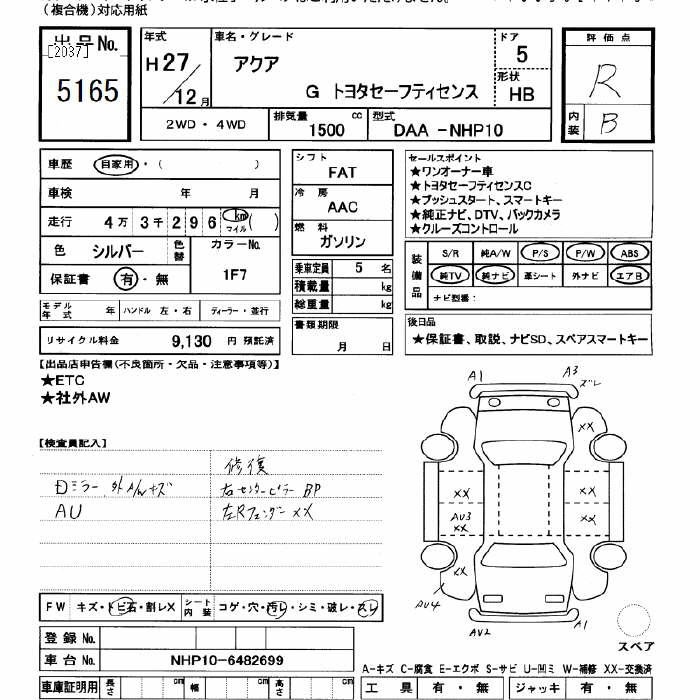 (複合機)対応用紙
出品No.
[2037]
5165
年式
H27/12月
車名・グレード
アクア
G トヨタセーフティセンス
ドア
5
形状
HB
評価点
R
内装
B
2WD・4WD
排気量
1500 cc
型式
DAA -NHP10
車歴 自家用・( )
車検 年 月
走行 4万 3千 2 9 6 km マイル ( )
色 シルバー 色替 カラーNo.
1F7
保証書 有・無
モデル年式 年 ハンドル 左・右 ディーラー・並行
リサイクル料金 9,130 円 預託済
シフト
FAT
冷房
AAC
燃料
ガソリン
乗車定員 5 名
積載量 kg
総重量 kg
書類期限
月 日
セールスポイント
★ワンオーナー車
★トヨタセーフティセンスC
★プッシュスタート、スマートキー
★純正ナビ、DTV、バックカメラ
★クルーズコントロール
装備品
S/R 純A/W P/S P/W ABS
純TV 純ナビ 革シート 外ナビ エアB
ナビ型番:
後日品
★保証書、取説、ナビSD、スペアスマートキー
【出品店申告欄(不良箇所・欠品・注意事項等)】
★ETC
★社外AW
【検査員記入】
修復
Dミラー 外A/Wキズ 右センターピラー BP
AU 左Rフェンダー XX
A1 A3 ズレ
XX
XX XX
AU3 XX XX
XX
AU4
AU2 A1
スペア
FW キズ・トビ石・割レX シート内装 コゲ・穴・汚レ・シミ・破レ・スレ
登録No.
車台No. NHP10-6482699
車庫証明用 長さ cm 幅 cm 高さ cm
A-キズ C-腐食 E-エクボ S-サビ U-凹ミ W-補修 XX-交換済
工具 有・無 ジャッキ 有・無